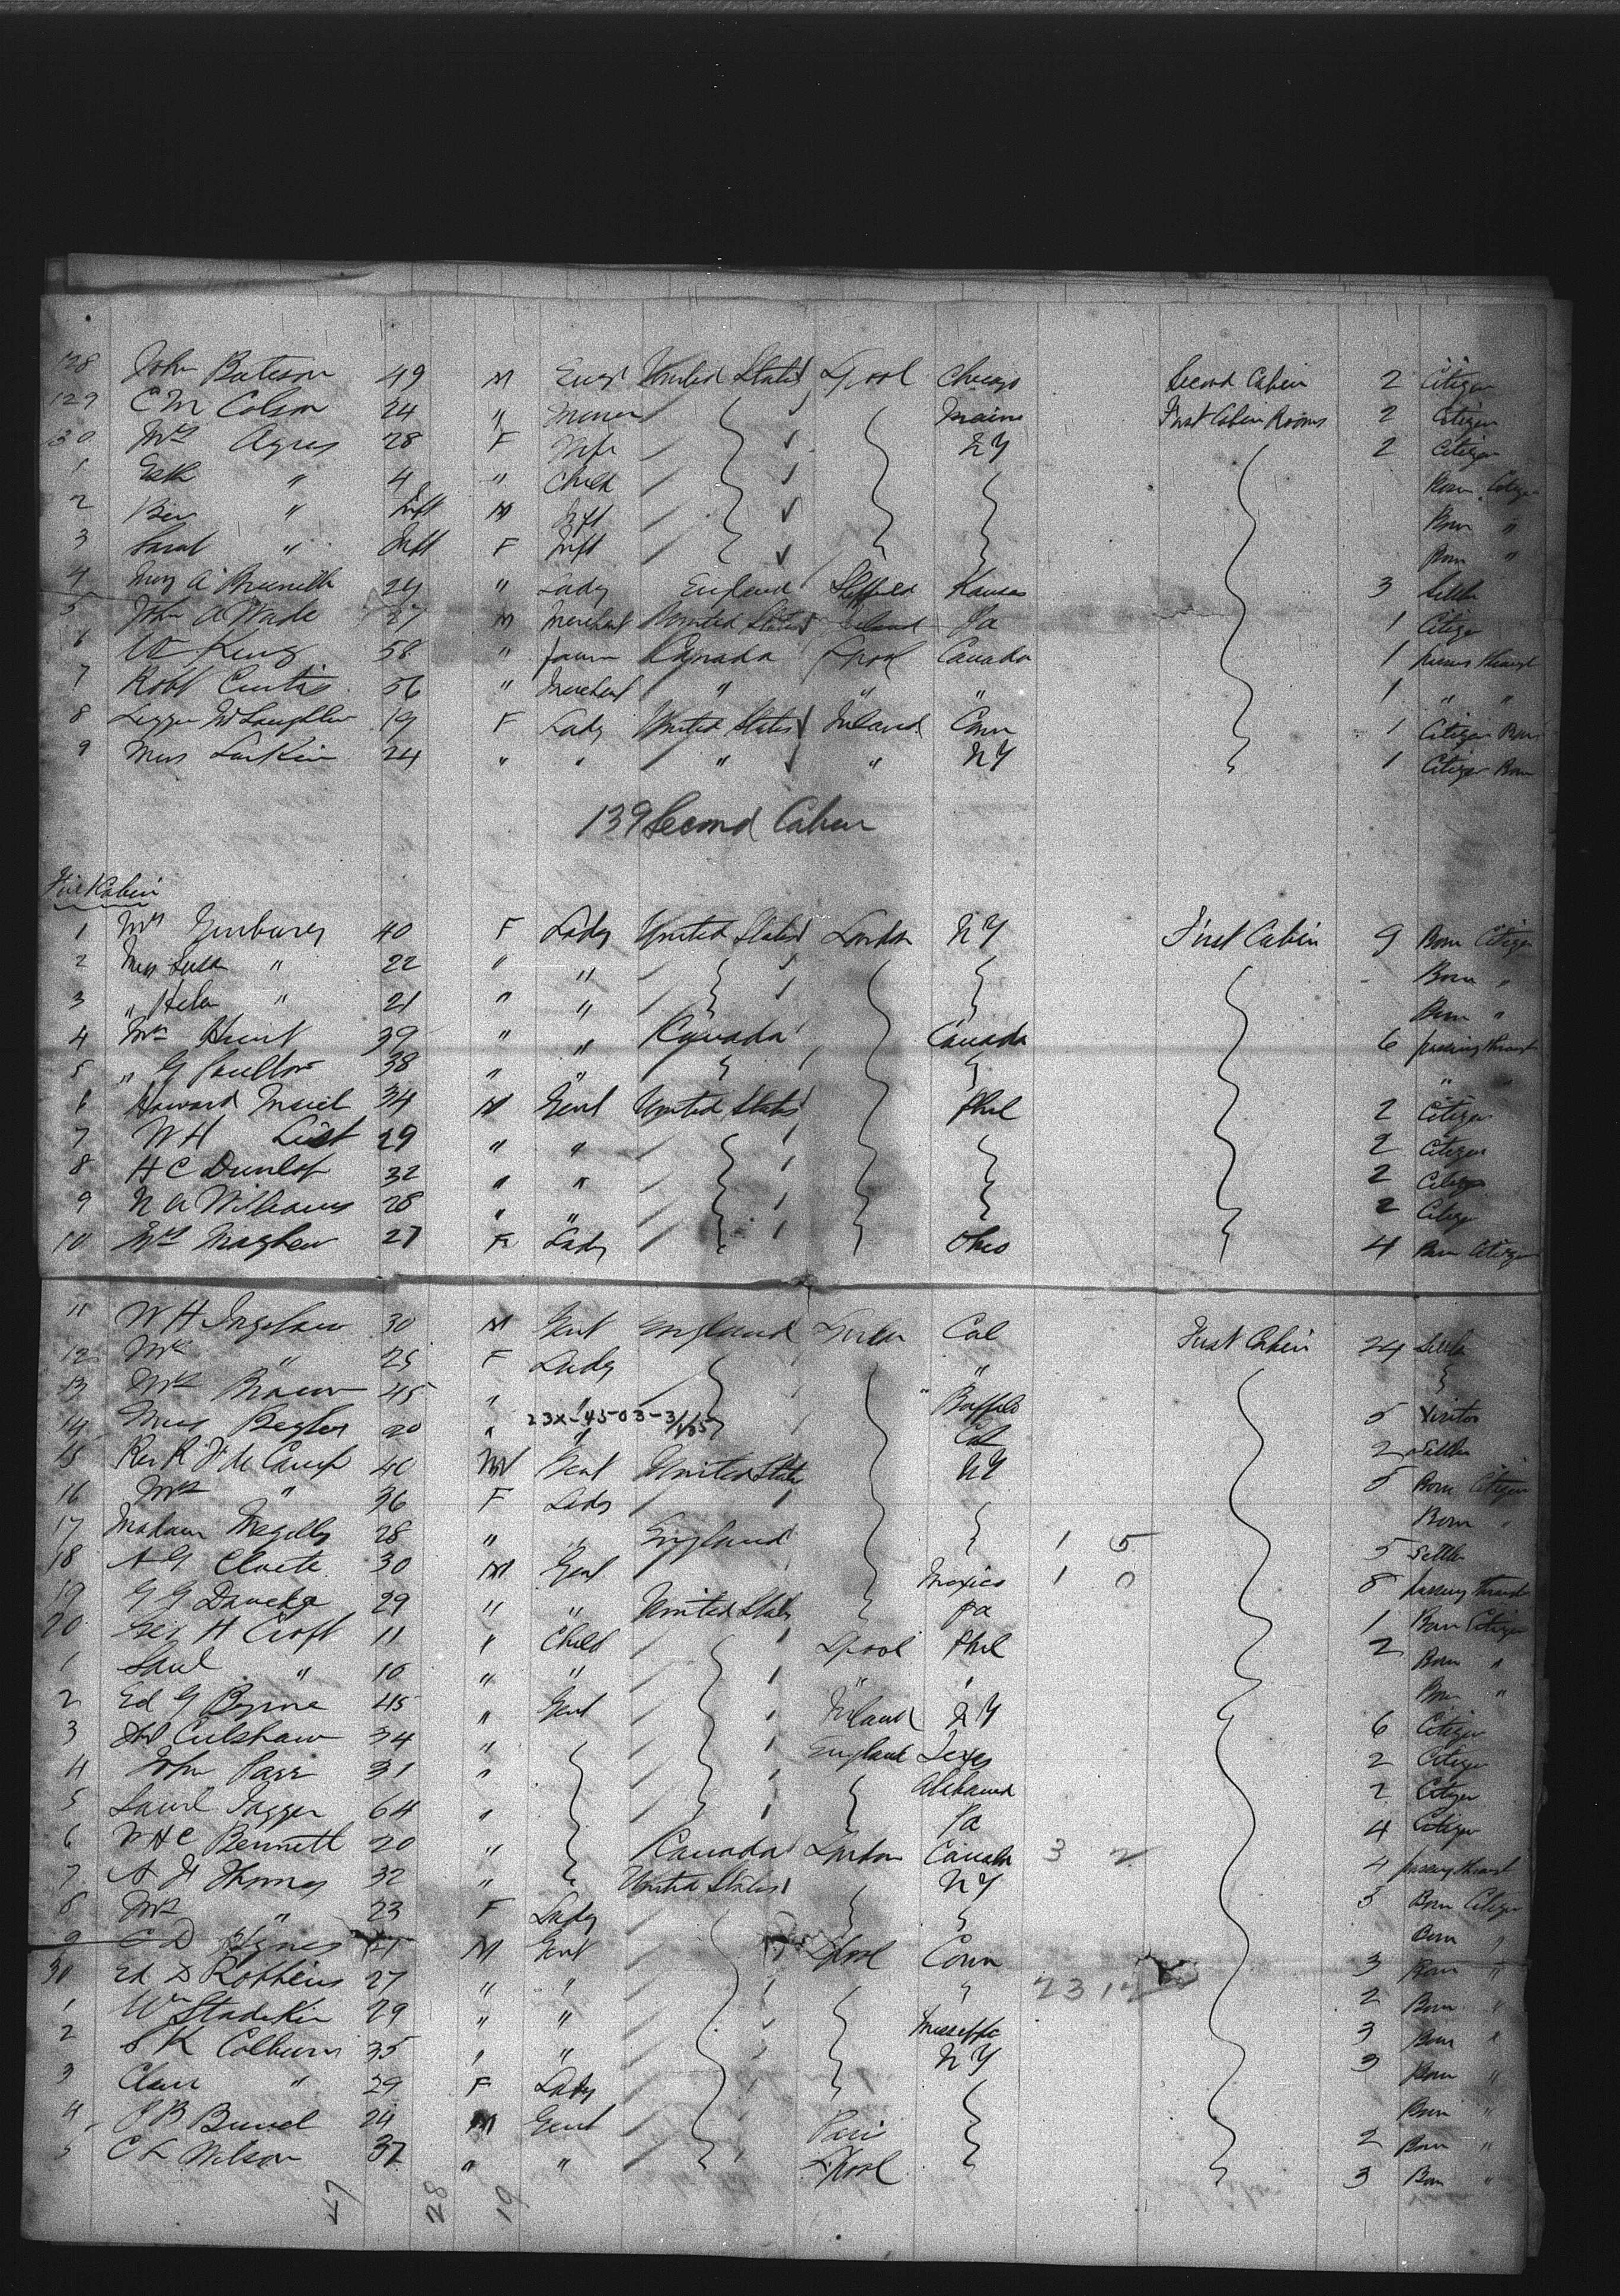 128 John Bateson 49 M Engr United States Lpool Chicago Second Cabin 2 Citizen
129 C M Colson 24 " Maine First Cabin Rooms 2 Citizen
130 Mrs Agnes 28 F Wife NY 2 Citizen
1 " 4 " Child Born Citizen
2 Ben " Inft M Inft Born "
3 Sarah " Inft F Inft Born "
4 Mary A 24 " Lady England Sheffield Kansas 3 Settler
5 John A Wade 27 M Merchant United States Ireland Pa 1 Citizen
6 W King 58 " Farmer Canada Lpool Canada 1 passing through
7 Robt Curtis 56 " Merchant " " " 1 " "
8 Lizzie McLaughlin 19 F Lady United States Ireland Conn 1 Citizen Born
9 Miss Larkin 24 " " " " NY 1 Citizen Born
139 Second Cabin
First Cabin
1 Mrs 40 F Lady United States London NY First Cabin 9 Born Citizen
2 Miss " 22 " " Born "
3 " Helen " 21 " " Born "
4 Mrs Hunt 39 " " Canada Canada 6 passing through
5 " G 38 " " " "
6 Howard 34 M Gent United States Phil 2 Citizen
7 W H List 29 " " 2 Citizen
8 H C Dunlop 32 " " 2 Citizen
9 N A Williams 28 " " 2 Citizen
10 Mrs Mayhew 27 F Lady Ohio 4 Born Citizen
11 W H 30 M Gent England London Cal First Cabin 24 Settler
12 Mrs " 25 F Lady "
13 Mrs Brown 45 " " " Buffalo 5 Visitor
23X-45-03-3/1/55
14 Miss 20 " " Cal 2 Settler
15 Rev R F De Camp 40 M Gent United States NY 5 Born Citizen
16 Mrs " 36 F Lady Born "
17 Madam 28 " " England 1 5 5 Settler
18 A G Cloete 30 M Gent Mexico 1 0 8 passing through
19 G G 29 " " United States Pa 1 Born Citizen
20 Geo H Croft 11 " Child Lpool Phil 2 Born "
1 Saml " 10 " " " " Born "
2 Ed G Byrne 45 " Gent Ireland NY 6 Citizen
3 Culshaw 34 " England Texas 2 Citizen
4 John Parr 31 " Alabama 2 Citizen
5 Saml Jagger 64 " Pa 4 Citizen
6 W H C Bennett 20 " Canada London Canada 3 2 4 passing through
7 A H Thomas 32 " United States NY 5 Born Citizen
8 Mrs " 23 F Lady Born "
9 C D 21 M Gent Lpool Conn 3 Born "
30 Ed D Robbins 27 " " " 2312 2 Born "
1 Wm 29 " " 3 Born "
2 S K Colburn 35 " " NY 3 Born "
3 Clara " 29 F Lady Born "
4 24 M Gent Paris 2 Born "
5 C L Wilson 37 " " Lpool 3 Born "
47 28 19